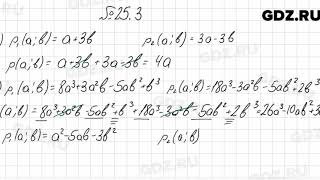 №25.3
GDZ.RU
) p₁(a;b) = a+3b p₂(a;b) = 3a-3b
p(a;b) = a+3b+3a-3b = 4a
) p₁(a;b) = 8a³+3a²b-5ab²+b³ p₂(a;b) = 18a³-3a²b-5ab²+2b³
= 8a³+3a²b-5ab²+b³+18a³-3a²b-5ab²+2b³=26a³-10ab²+3
p₁(a;b) = a²-5ab-3b² p₂(a;b)
GDZ.RU